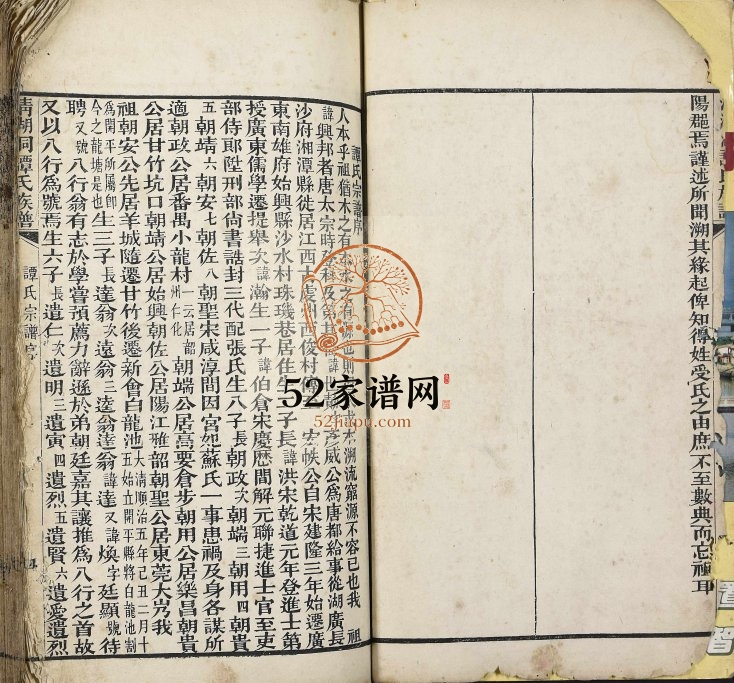 陽郡焉謹述所聞溯其緣起俾知得姓受氏之由庶不至數典而忘祖耳
譚氏宗譜序
人本乎祖猶木之有本水之有源也則本溯流窮源不容已也我 祖
諱興邦者唐太宗時登科及第其威公為唐都給事從湖廣長
沙府湘潭縣徙居江西虔州西俊村宏帙公自宋建隆三年始遷廣
東南雄府始興縣沙水村珠璣巷居住生子長諱洪宋乾道元年登進士第
授廣東儒學遷提舉次諱瀚生一子諱伯倉宋慶歷間解元聯捷進士官至吏
部侍郎陞刑部尚書誥封三代配張氏生八子長朝政次朝端三朝用四朝貴
五朝靖六朝安七朝佐八朝聖宋咸淳間因宮妃蘇氏一事患禍及身各謀所
適朝政公居番禺小龍村一云居韶州仁化朝端公居高要倉步朝用公居樂昌朝貴
公居甘竹坑口朝靖公居始興朝佐公居陽江雅韶朝聖公居東莞大岃我
祖朝安公先居羊城隨遷甘竹後遷新會白龍池大清順治五年己丑二月十五始立開平縣將白龍池割
為開平所屬即今之龍塘是也生三子長達翁次遠翁三逵翁達翁諱達又諱煥字廷顯號待
聘又號八行翁有志於學嘗預薦力辭遜於弟朝廷嘉其讓推為八行之首故
又以八行為號焉生六子長遺仁次遺明三遺寅四遺烈五遺賢六遺愛遺烈
清湖同譚氏族譜
譚氏宗譜序
52家谱网
52hapu.com